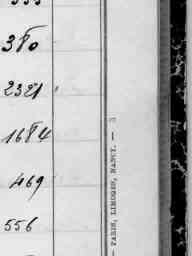 380
2321
1684
469
556
— PARIS, LIMOGES, NANCY. — 3